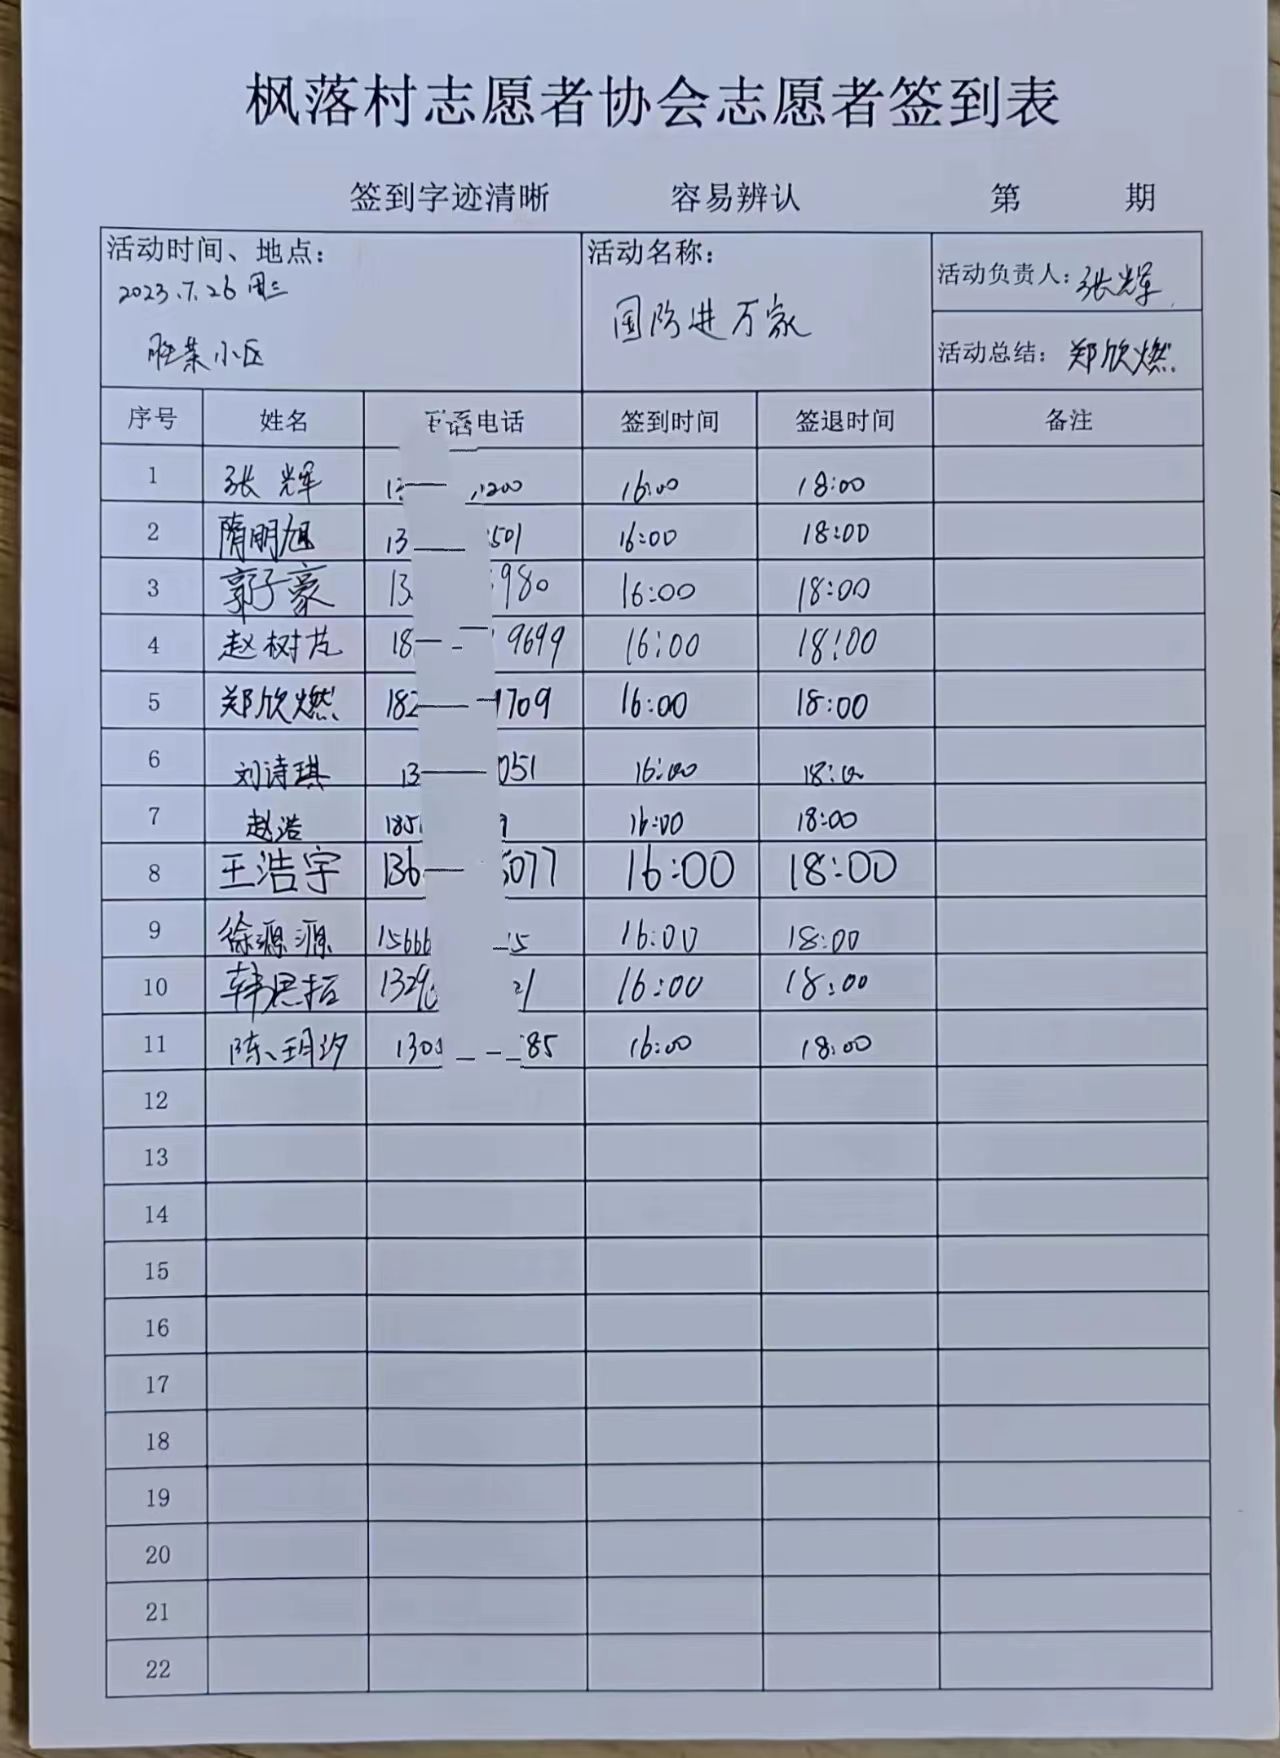 枫落村志愿者协会志愿者签到表
签到字迹清晰 容易辨认 第 期
活动时间、地点：
2023.7.26 周三
小区
活动名称：
国防进万家
活动负责人：张辉
活动总结：郑欣燃
序号 姓名 电话 签到时间 签退时间 备注
1 张辉 1200 16:00 18:00
2 隋明旭 13 501 16:00 18:00
3 郭子豪 13 980 16:00 18:00
4 赵树芃 18 9699 16:00 18:00
5 郑欣燃 182 1709 16:00 18:00
6 刘诗琪 13 051 16:00 18:00
7 赵浩 185 9 16:00 18:00
8 王浩宇 136 5077 16:00 18:00
9 徐源源 15666 5 16:00 18:00
10 韩思拓 1329 21 16:00 18:00
11 陈玥汐 130 85 16:00 18:00
12
13
14
15
16
17
18
19
20
21
22